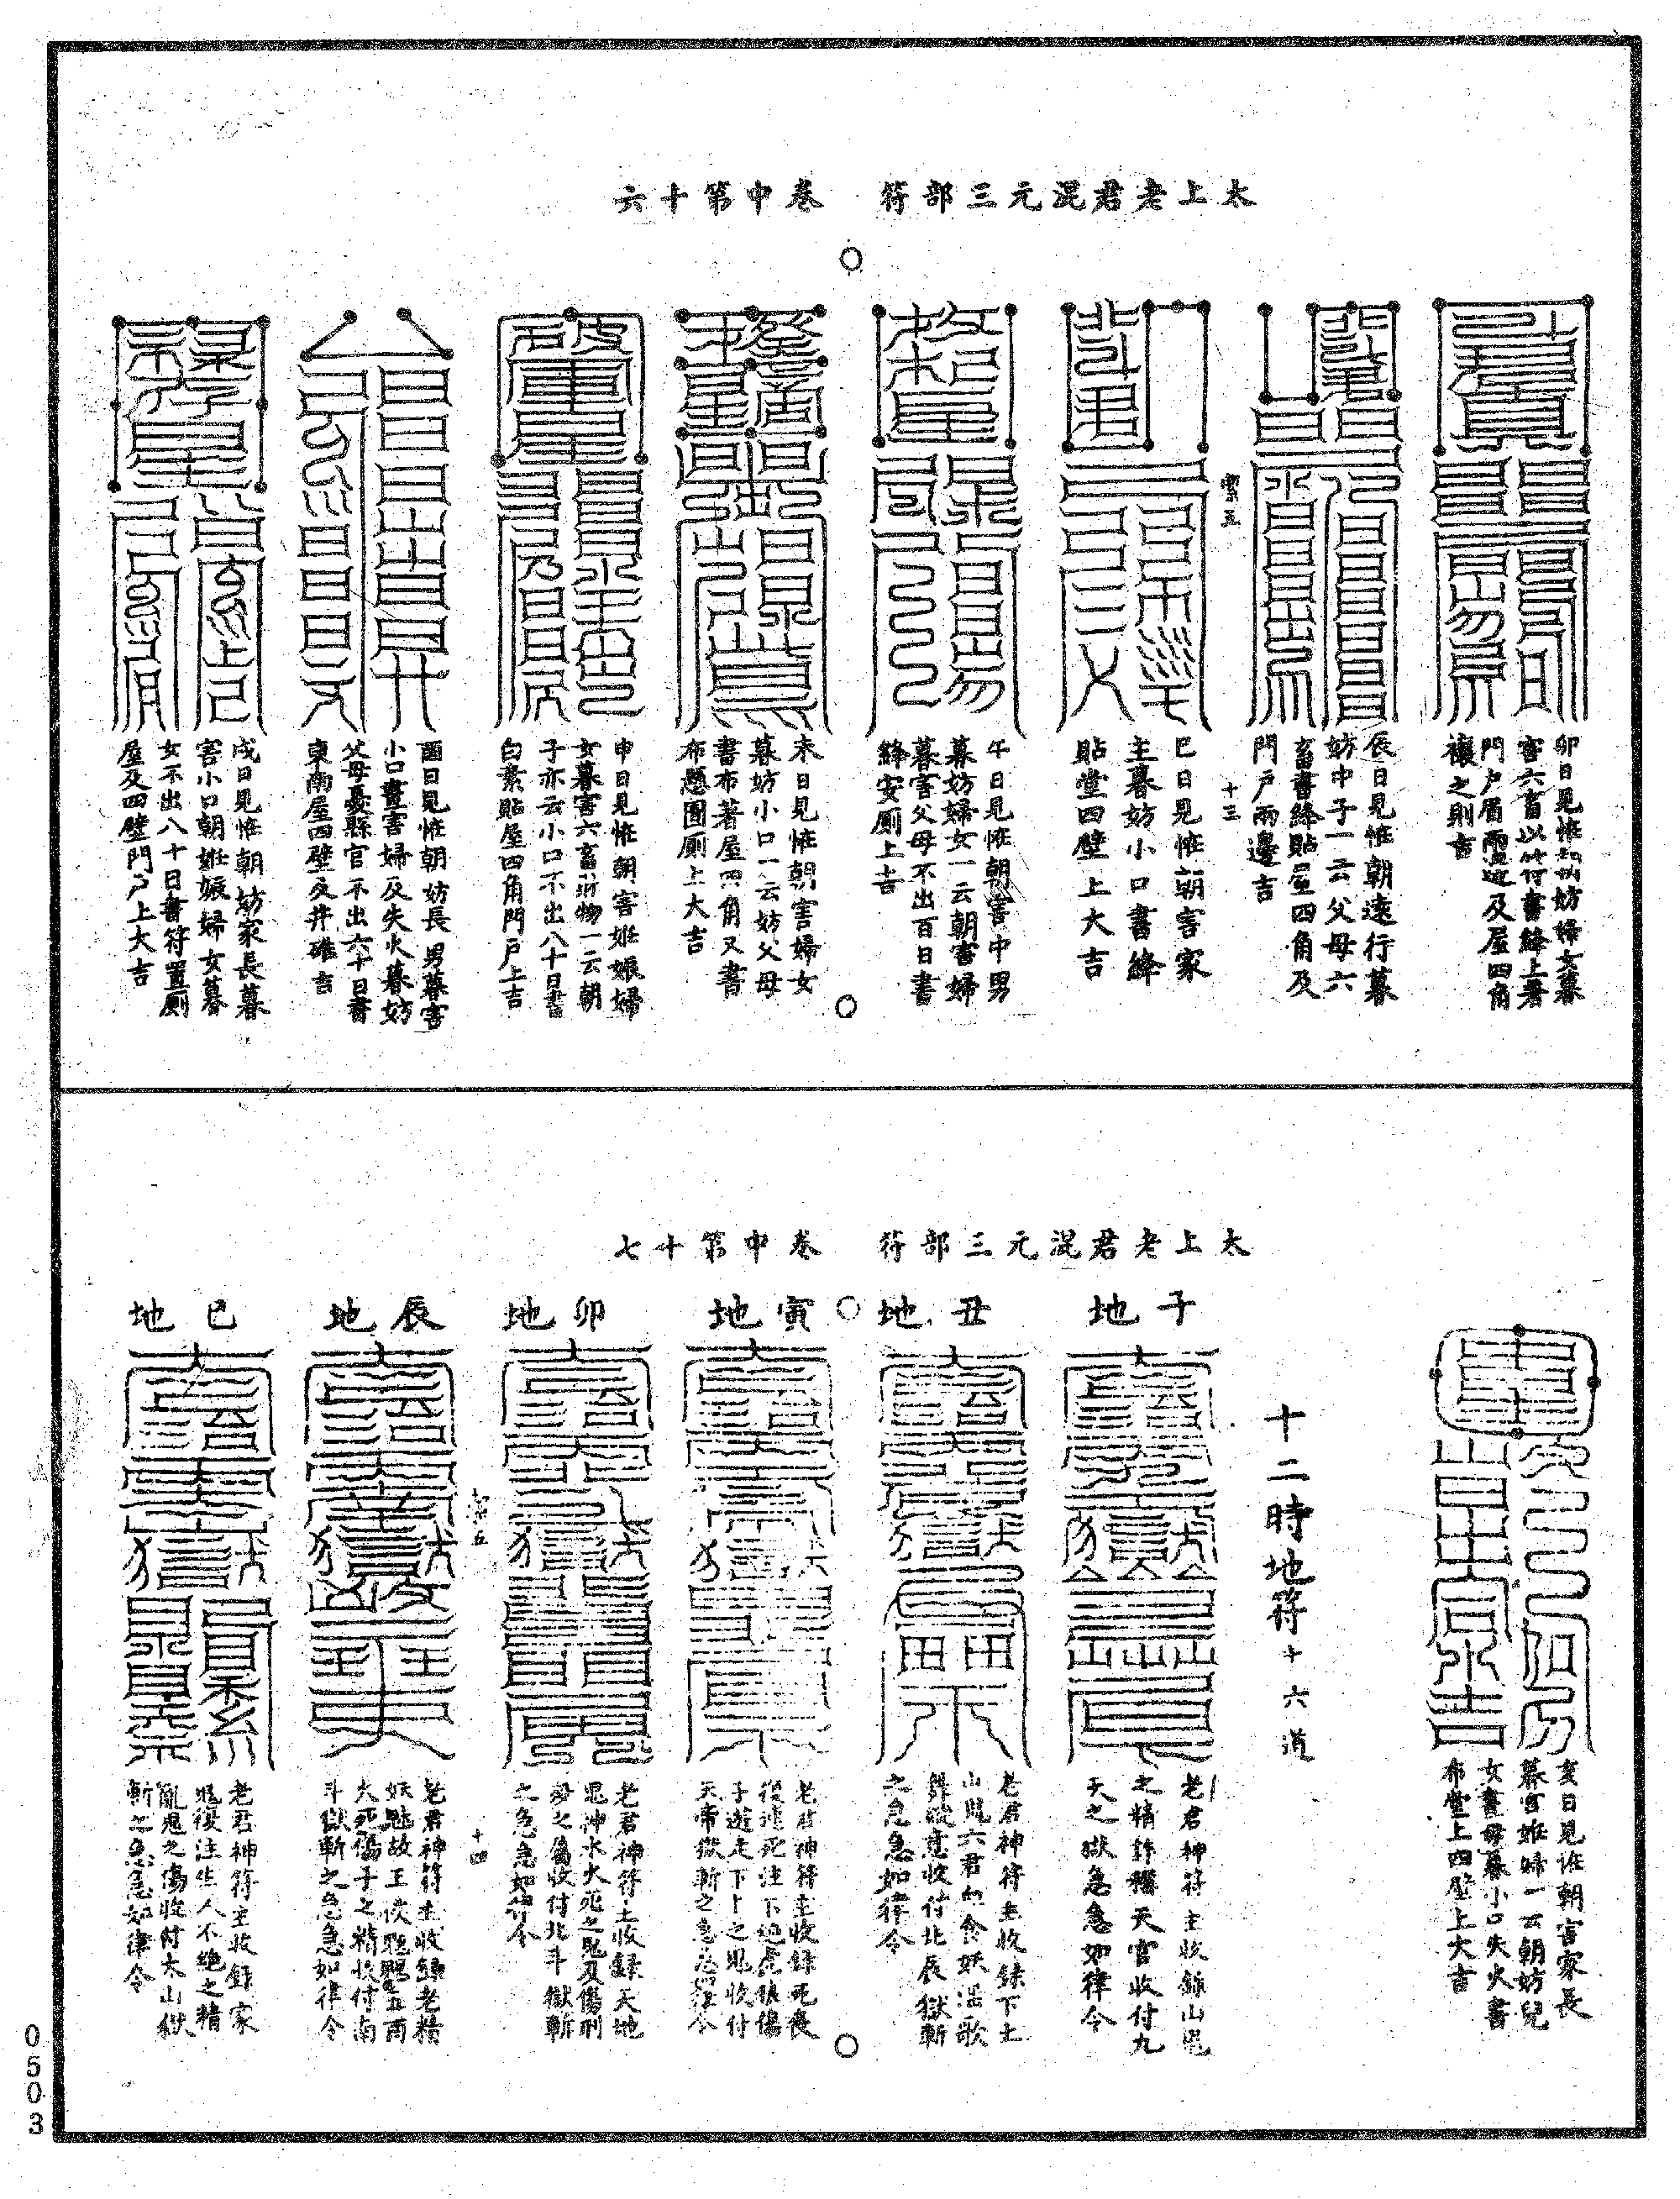 太上老君混元三部符　卷中第十六
卯日見恠朝妨婦女暮
害六畜以符書絳上著
門戶眉兩邊及屋四角
禳之則吉
辰日見恠朝遠行暮
妨中子一云父母六
畜書絳貼屋四角及
門戶兩邊吉
十三
巳日見恠朝害家
主暮妨小口書絳
貼堂四壁上大吉
午日見恠朝害中男
暮妨婦女一云朝害婦
暮害父母不出百日書
絳安厠上吉
未日見恠朝害婦女
暮妨小口一云妨父母
書布著屋四角又書
布懸圊厠上大吉
申日見恠朝害姙娠婦
女暮害六畜財物一云朝
子亦云小口不出八十日書
白素貼屋四角門戶上吉
酉日見恠朝妨長男暮害
小口晝害婦及失火暮妨
父母憂縣官不出六十日書
東南屋四壁及井碓吉
戌日見恠朝妨家長暮
害小口朝姙娠婦女暮
女不出八十日書符置厠
屋及四壁門戶上大吉
太上老君混元三部符　卷中第十七
亥日見恠朝害家長
暮害姙婦一云朝妨兒
女晝母暮小口失火書
布堂上四壁上大吉
十二時地符十六道
子地
老君神符主收錄山
之精 天官收付九
天之獄急急如律令
丑地
老君神符主收錄下土
山 六君 食妖 歌
舞 收付北辰獄斬
之急急如律令
寅地
老君神符主收錄死喪
復連死注下 虎狼傷
子遊走下 之鬼收付
天帝獄斬之急急如律令
卯地
老君神符主收錄天地
鬼神水火死之鬼及傷刑
之屬收付北斗獄斬
之急急如律令
十四
辰地
老君神符主收錄老精
妖魅故 五兩
火死傷子之精收付南
斗獄斬之急急如律令
巳地
老君神符主收錄家
鬼復注生人不絶之精
亂鬼之傷收付太山獄
斬之急急如律令
0503